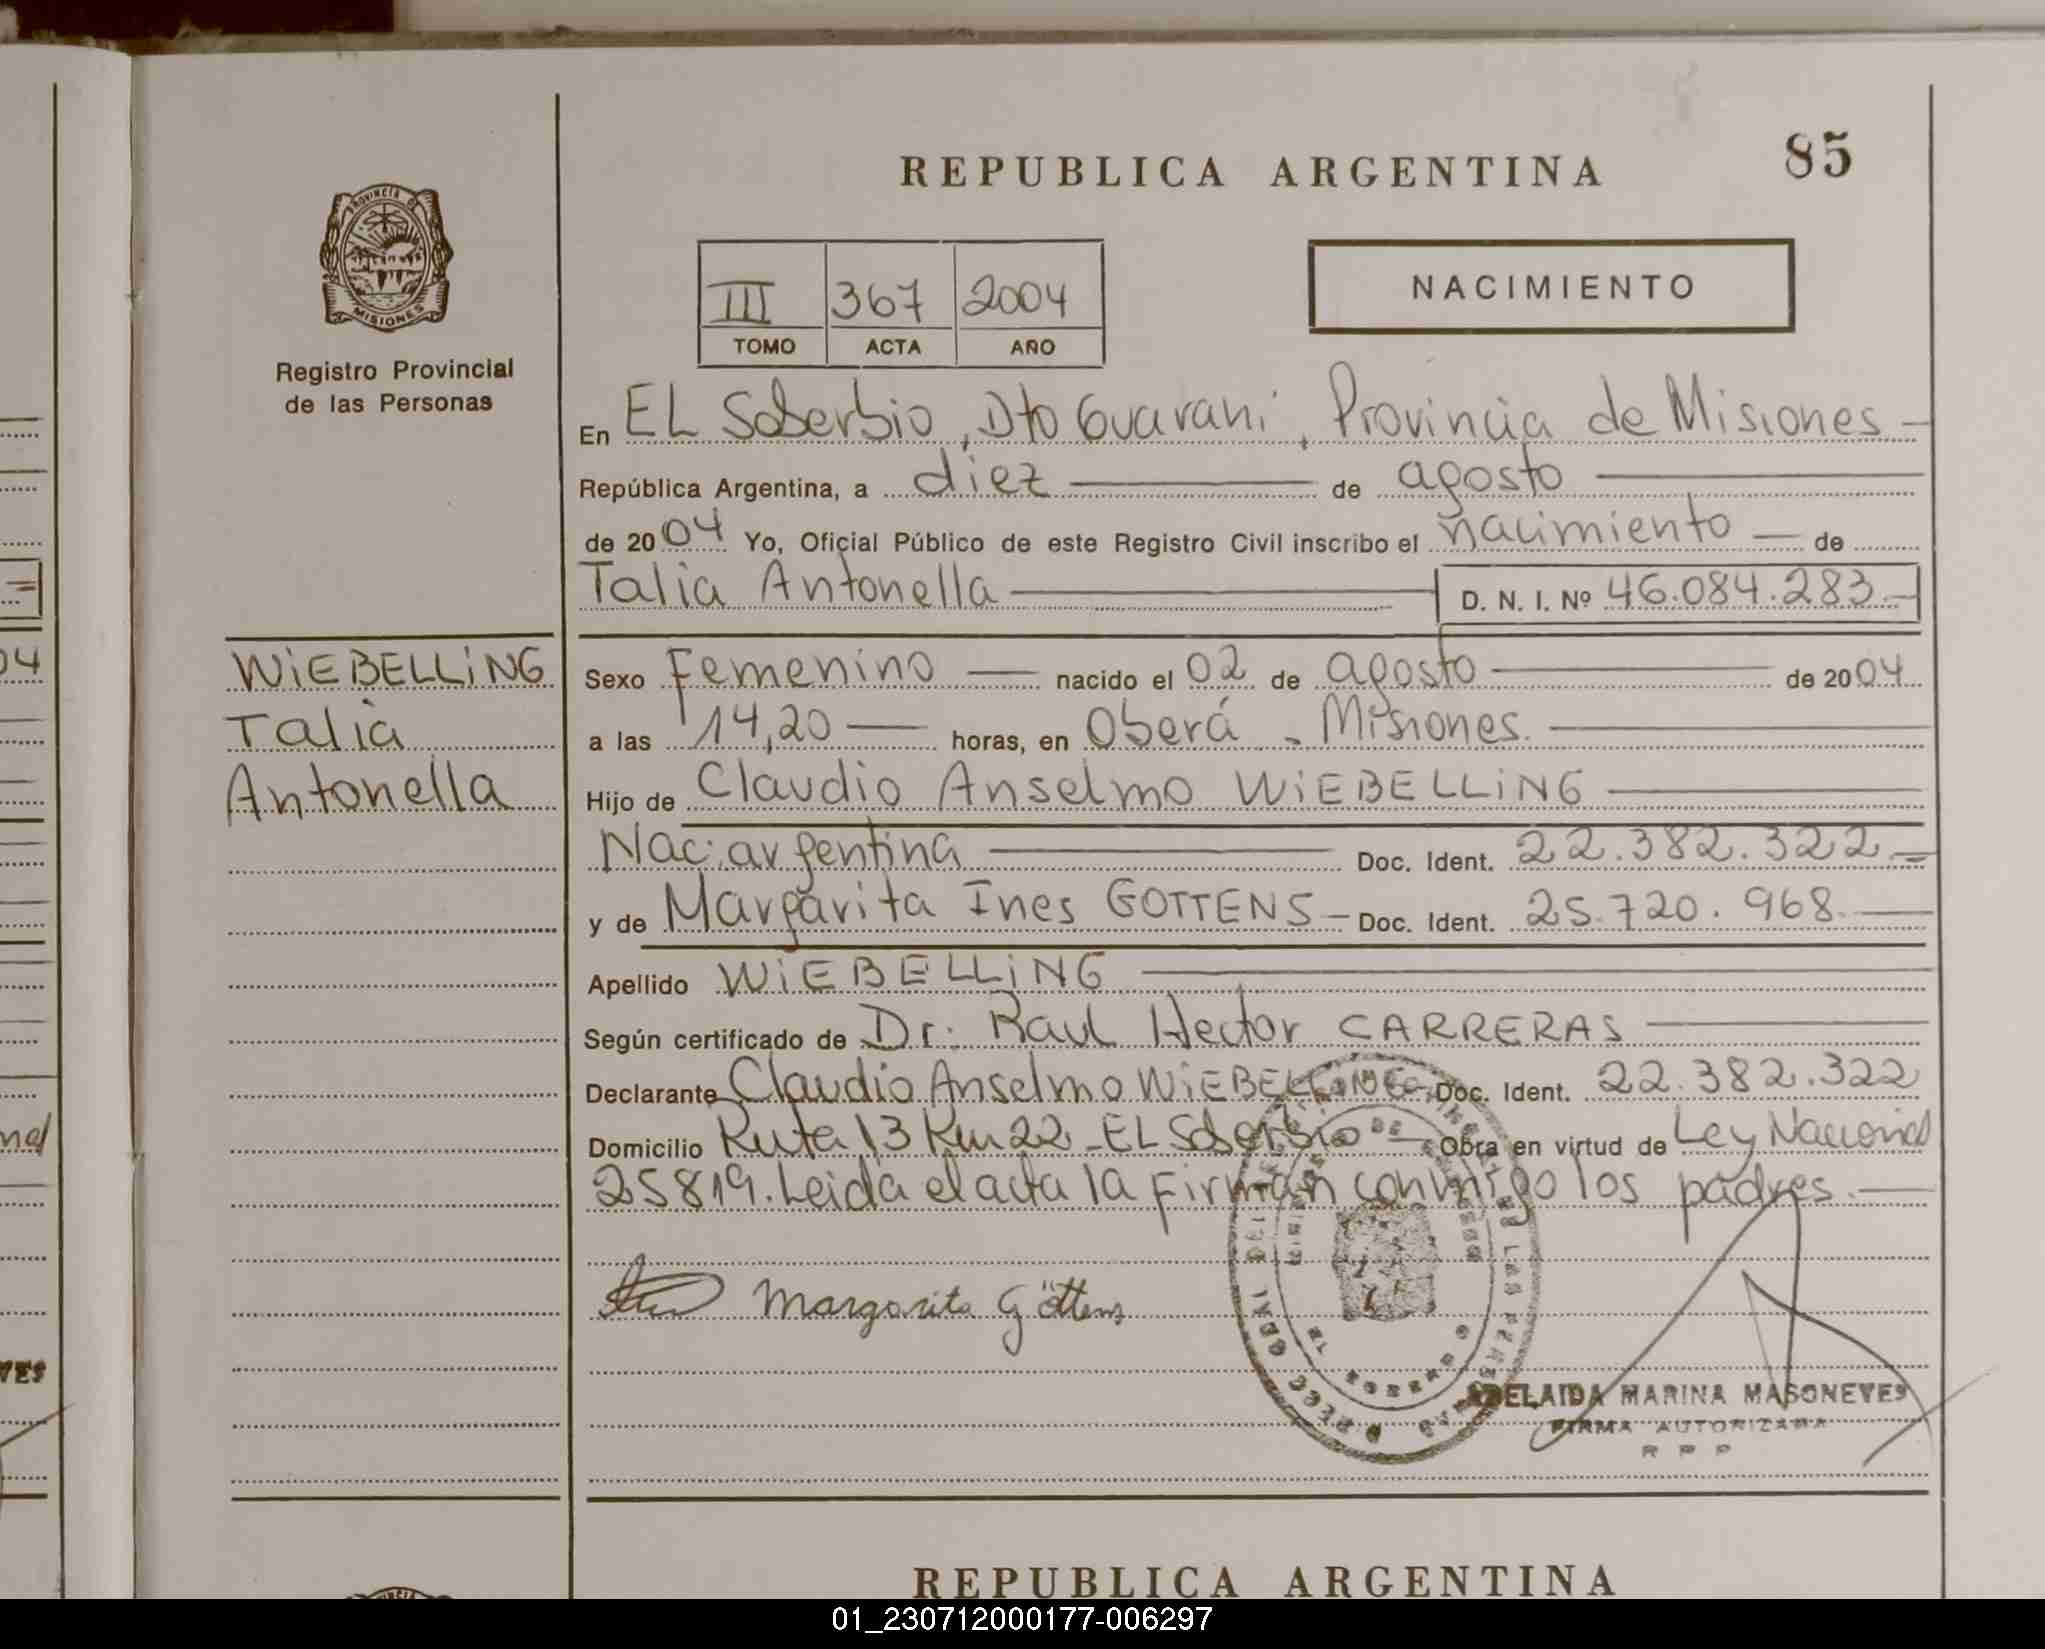 REPUBLICA ARGENTINA
85
PROVINCIA DE
MISIONES
Registro Provincial
de las Personas
III 367 2004
TOMO ACTA AÑO
NACIMIENTO
En EL Soberbio, Dto Guarani, Provincia de Misiones
República Argentina, a diez de agosto
de 2004 Yo, Oficial Público de este Registro Civil inscribo el nacimiento de
Talia Antonella D. N. I. Nº 46.084.283
WiEBELLiNG
Talia
Antonella
Sexo Femenino nacido el 02 de agosto de 2004
a las 14,20 horas, en Oberá - Misiones.
Hijo de Claudio Anselmo WiEBELLiNG
Nac. argentina Doc. Ident. 22.382.322
y de Margarita Ines GOTTENS Doc. Ident. 25.720.968
Apellido WiEBELLiNG
Según certificado de Dr. Raul Hector CARRERAS
Declarante Claudio Anselmo WiEBELLiNG Doc. Ident. 22.382.322
Domicilio Ruta 13 Km 22 - EL Soberbio Obra en virtud de Ley Nacional
25819. Leida el acta la Firman conmigo los padres.
Margarita Göttens
ADELAIDA MARINA MASONEVES
FIRMA AUTORIZADA
R P P
REPUBLICA ARGENTINA
01_230712000177-006297